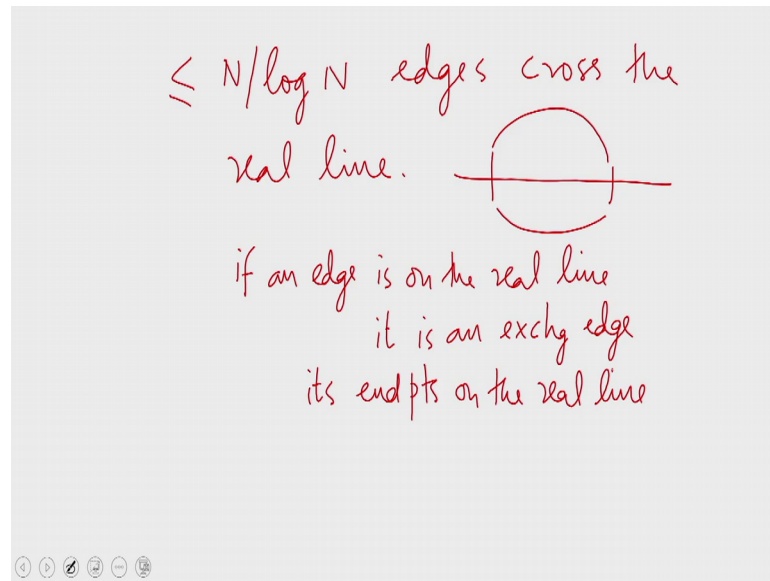 ≤ N/log N edges cross the
real line.
if an edge is on the real line
it is an exchg edge
its endpts on the real line